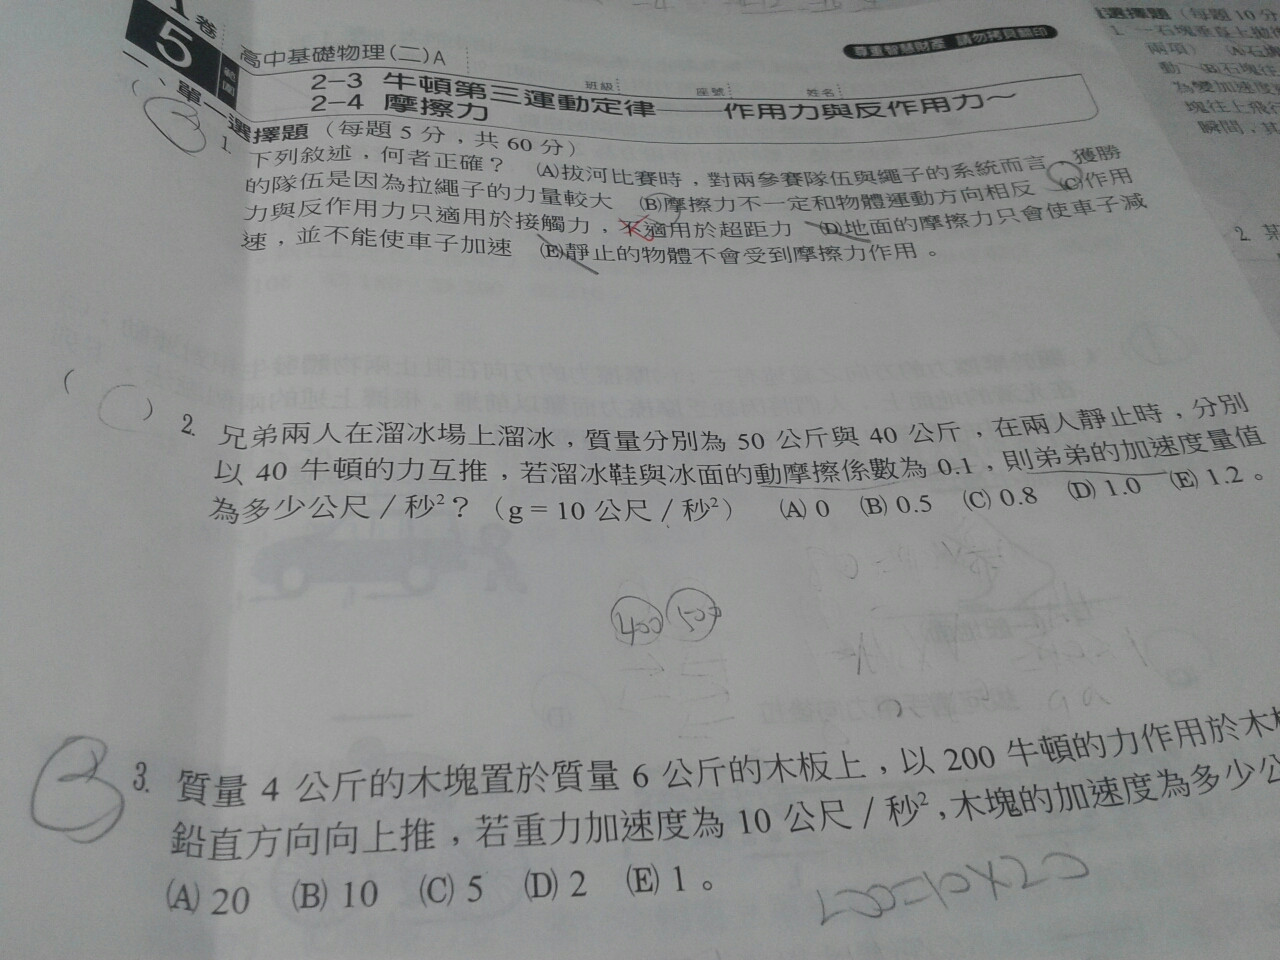 卷
5
範圍
高中基礎物理(二)A
尊重智慧財產 請勿拷貝翻印
2-3 牛頓第三運動定律——作用力與反作用力～
2-4 摩擦力
班級 座號 姓名
一、單一選擇題（每題 5 分，共 60 分）
1. 下列敘述，何者正確？ (A)拔河比賽時，對兩參賽隊伍與繩子的系統而言，獲勝
的隊伍是因為拉繩子的力量較大 (B)摩擦力不一定和物體運動方向相反 (C)作用
力與反作用力只適用於接觸力，不適用於超距力 (D)地面的摩擦力只會使車子減
速，並不能使車子加速 (E)靜止的物體不會受到摩擦力作用。
( ) 2. 兄弟兩人在溜冰場上溜冰，質量分別為 50 公斤與 40 公斤，在兩人靜止時，分別
以 40 牛頓的力互推，若溜冰鞋與冰面的動摩擦係數為 0.1，則弟弟的加速度量值
為多少公尺／秒²？（g = 10 公尺／秒²） (A) 0 (B) 0.5 (C) 0.8 (D) 1.0 (E) 1.2。
400 500
3. 質量 4 公斤的木塊置於質量 6 公斤的木板上，以 200 牛頓的力作用於木
鉛直方向向上推，若重力加速度為 10 公尺／秒²，木塊的加速度為多少公
(A) 20 (B) 10 (C) 5 (D) 2 (E) 1。
200=10×20
選擇題（每題 10 分
1. 一石塊垂直上拋後
兩項） (A)石塊
動 (B)石塊往
為變加速度
塊往上飛行
瞬間，其
2. 某